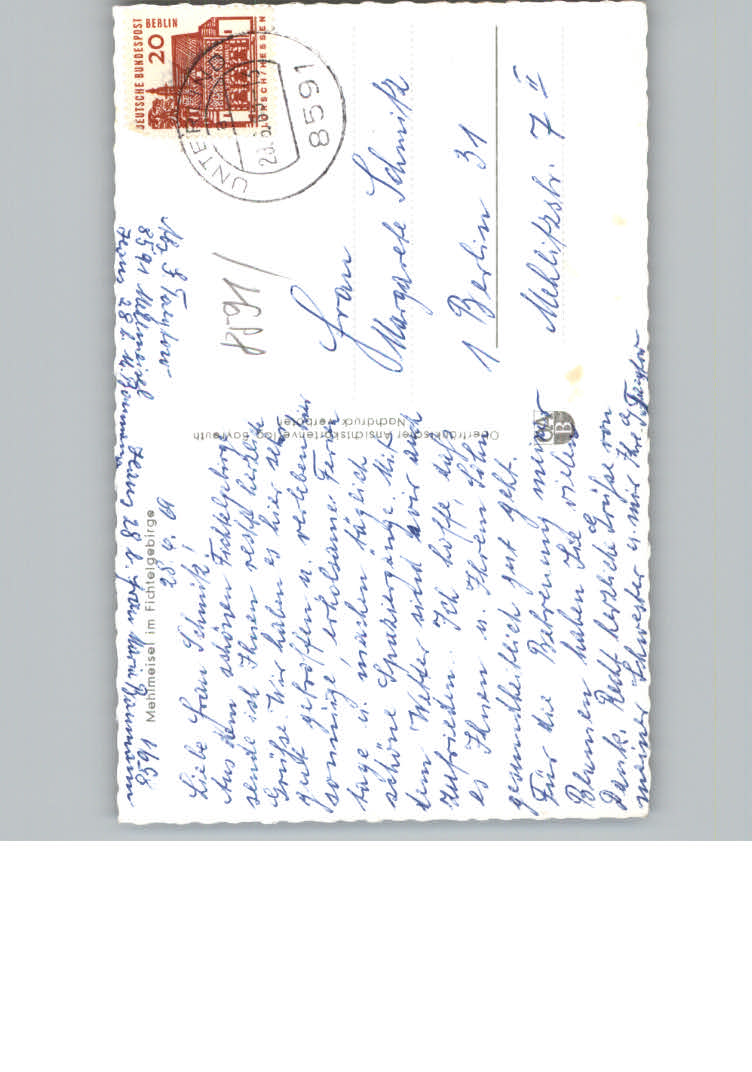 Mehlmeisel im Fichtelgebirge
1668
28.9.69
Liebe Frau Schmitz!
Aus dem schönen Fichtelgebirge
sende ich Ihnen recht herzliche
Grüße. Wir haben es hier sehr
gut getroffen u. verleben hier
sonnige, erholsame Ferien
tage u. machen täglich
schöne Spaziergänge. Mit
dem Wetter sind wir auch
zufrieden. Ich hoffe, daß
es Ihnen u. Ihrem Sohn
gesundheitlich gut geht.
Für die Betreuung meiner
Blumen haben Sie vielen
Dank. Recht herzliche Grüße von
meiner Schwester u. mir Ihr
Haus 28 b. Frau Marie Baumann
Abs.
8591 Mehlmeisel
Haus 28 b. Baumann
Oberfränkischer Ansichtskartenverlag Bayreuth
Nachdruck verboten
OAV
B
DEUTSCHE BUNDESPOST BERLIN
20
LORSCH/HESSEN
8591
8591
Frau
Margarete Schmitz
1 Berlin 31
Mehlitzstr. 7 II